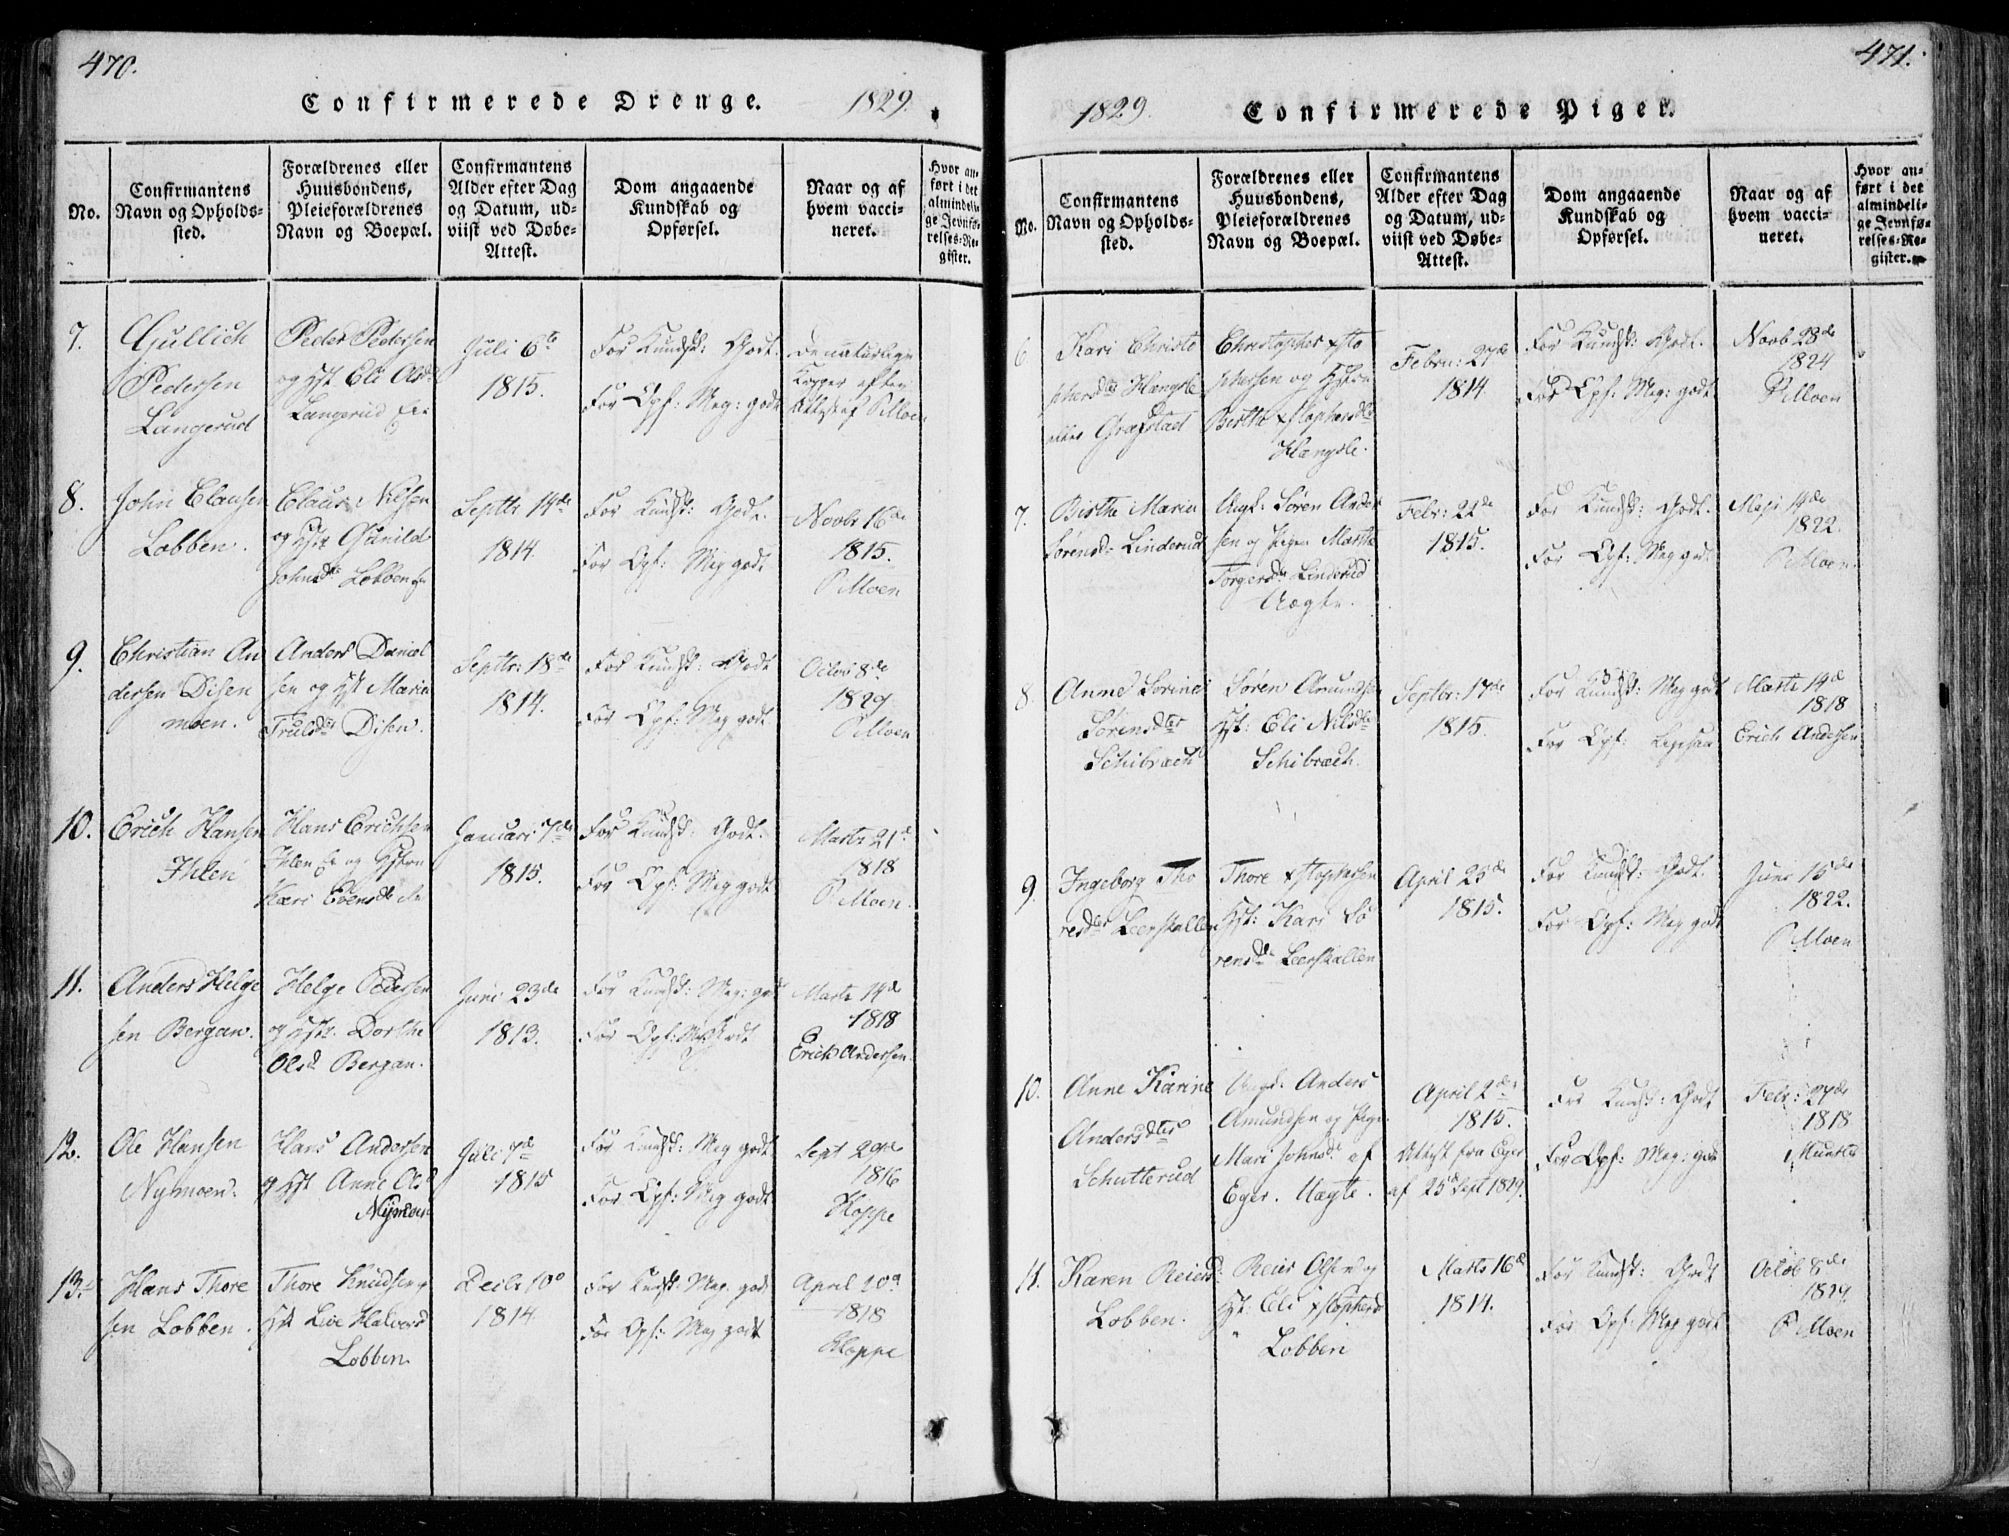 470.
Confirmerede Drenge. 1829.
No.
Confirmantens
Navn og Opholds-
sted.
Forældrenes eller
Huusbondens,
Pleieforældrenes
Navn og Boepæl.
Confirmantens
Alder efter Dag
og Datum, ud-
viist ved Døbe-
Attest.
Dom angaaende
Kundskab og
Opførsel.
Naar og af
hvem vacci-
neret.
Hvor an-
ført i det
almindeli-
ge Jevnfø-
relses-Re-
gister.
7.
Gullich
Pedersen
Langerud
Peder Pedersen
og Hst Eli Olsd
Langerud Eie
Juli 6te
1815.
For Kundsk: Godt.
For Opf: Meg: godt
De naturlige
Kopper efter
Attest af P Moen
8.
John Clausen
Lobben.
Claus Nilsen
og Hst Gunild
Johnsdr Lobben
Septbr 14de
1814.
For Kundsk: Godt.
For Opf: Meg godt
Novbr 16de
1815.
P Moen
9.
Christian An
dersen Disen
moen.
Anders Daniel
sen og Hst Maria
Trulsdr Disen
Septbr: 18de
1814.
For Kundsk: Godt
For Opf: Meg godt
Octob 8de
1829
P Moen
10.
Erich Hansen
Ihlen
Hans Erichsen
Ihlen Eie og Hstru
Kari Evensdr
Januari 7de
1815.
For Kundsk: Godt.
For Opf: Meg godt
Marts 21de
1818
P Moen.
11.
Anders Helge
sen Bergan.
Helge Pedersen
og Hst. Dorthe
Olsd Bergan.
Juni 23de
1813.
For Kundsk: Meg: godt
For Opf: Meg godt
Marts 14de
1818
Erich Andersen
12.
Ole Hansen
Nymoen.
Hans Andersen
og Hst Anne Olsd
Nymoen
Juli 7de
1815
For Kundsk: Meg godt
For Opf: Meg godt
Sept 29de
1816
Hoppe
13.
Hans Thore
sen Lobben.
Thore Knudsen og
Hst Live Halvorsd
Lobben.
Decbr 10de
1814
For Kundsk: Meg. godt
For Opf: Meg godt
April 20de
1818
Hoppe
471.
1829. Confirmerede Piger.
No.
Confirmantens
Navn og Opholds-
sted.
Forældrenes eller
Huusbondens,
Pleieforældrenes
Navn og Boepæl.
Confirmantens
Alder efter Dag
og Datum, ud-
viist ved Døbe-
Attest.
Dom angaaende
Kundskab og
Opførsel.
Naar og af
hvem vacci-
neret.
Hvor an-
ført i det
almindeli-
ge Jevnfø-
relses-Re-
gister.
6
Kari Christo
phersdtr Hængsle
eller Grøfstad
Christopher Xsto
phersen og Hstru
Birthe Xstophersdtr
Hængsle.
Febru: 27de
1814.
For Kundsk: Godt.
For Opf: Meg: godt
Novb 28de
1824
P Moen
7.
Birthe Maria
Sørensdr Linderud
Ungk: Søren Ander
sen og Pigen Marthe
Torgersdr Linderud
Uægte.
Febr: 22de
1815.
For Kundsk: Godt.
For Opf: Meg godt
Maji 14de
1822.
P Moen
8.
Anne Sørine
Sørensdtr
Schibræch
Søren Amundsen
Hst: Eli Nilsdtr
Schibræch.
Septbr: 17de
1815.
For Kundsk: Meg godt
For Opf: Ligesaa
Marts 14de
1818
Erich Andersen
9.
Ingeborg Tho
resdr Leerskallen
Thore Xstophersen
Hst: Kari Sø
rensdr Leerskallen
April 25de
1815.
For Kundsk: Godt.
For Opf: Meg godt
Juni 15de
1822.
P Moen
10.
Anne Karine
Andersdtr
Schutterud
Ungk: Anders
Amundsen og Pige
Mari Johnsdr af
Eger. Uægte.
April 2de
1815.
Attest fra Eger
af 25de Sept 1829.
For Kundsk: Godt
For Opf: Meg: godt
Febr: 27de
1818
11.
Karen Reiersd
Lobben.
Reier Olsen og
Hst: Eli Xstophersd
Lobben
Marts 16de
1814.
For Kundsk: Godt
For Opf: Meg godt
Octob 8de
1829.
P Moen